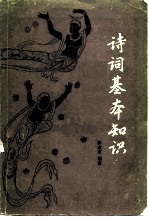 诗词基本知识
编著